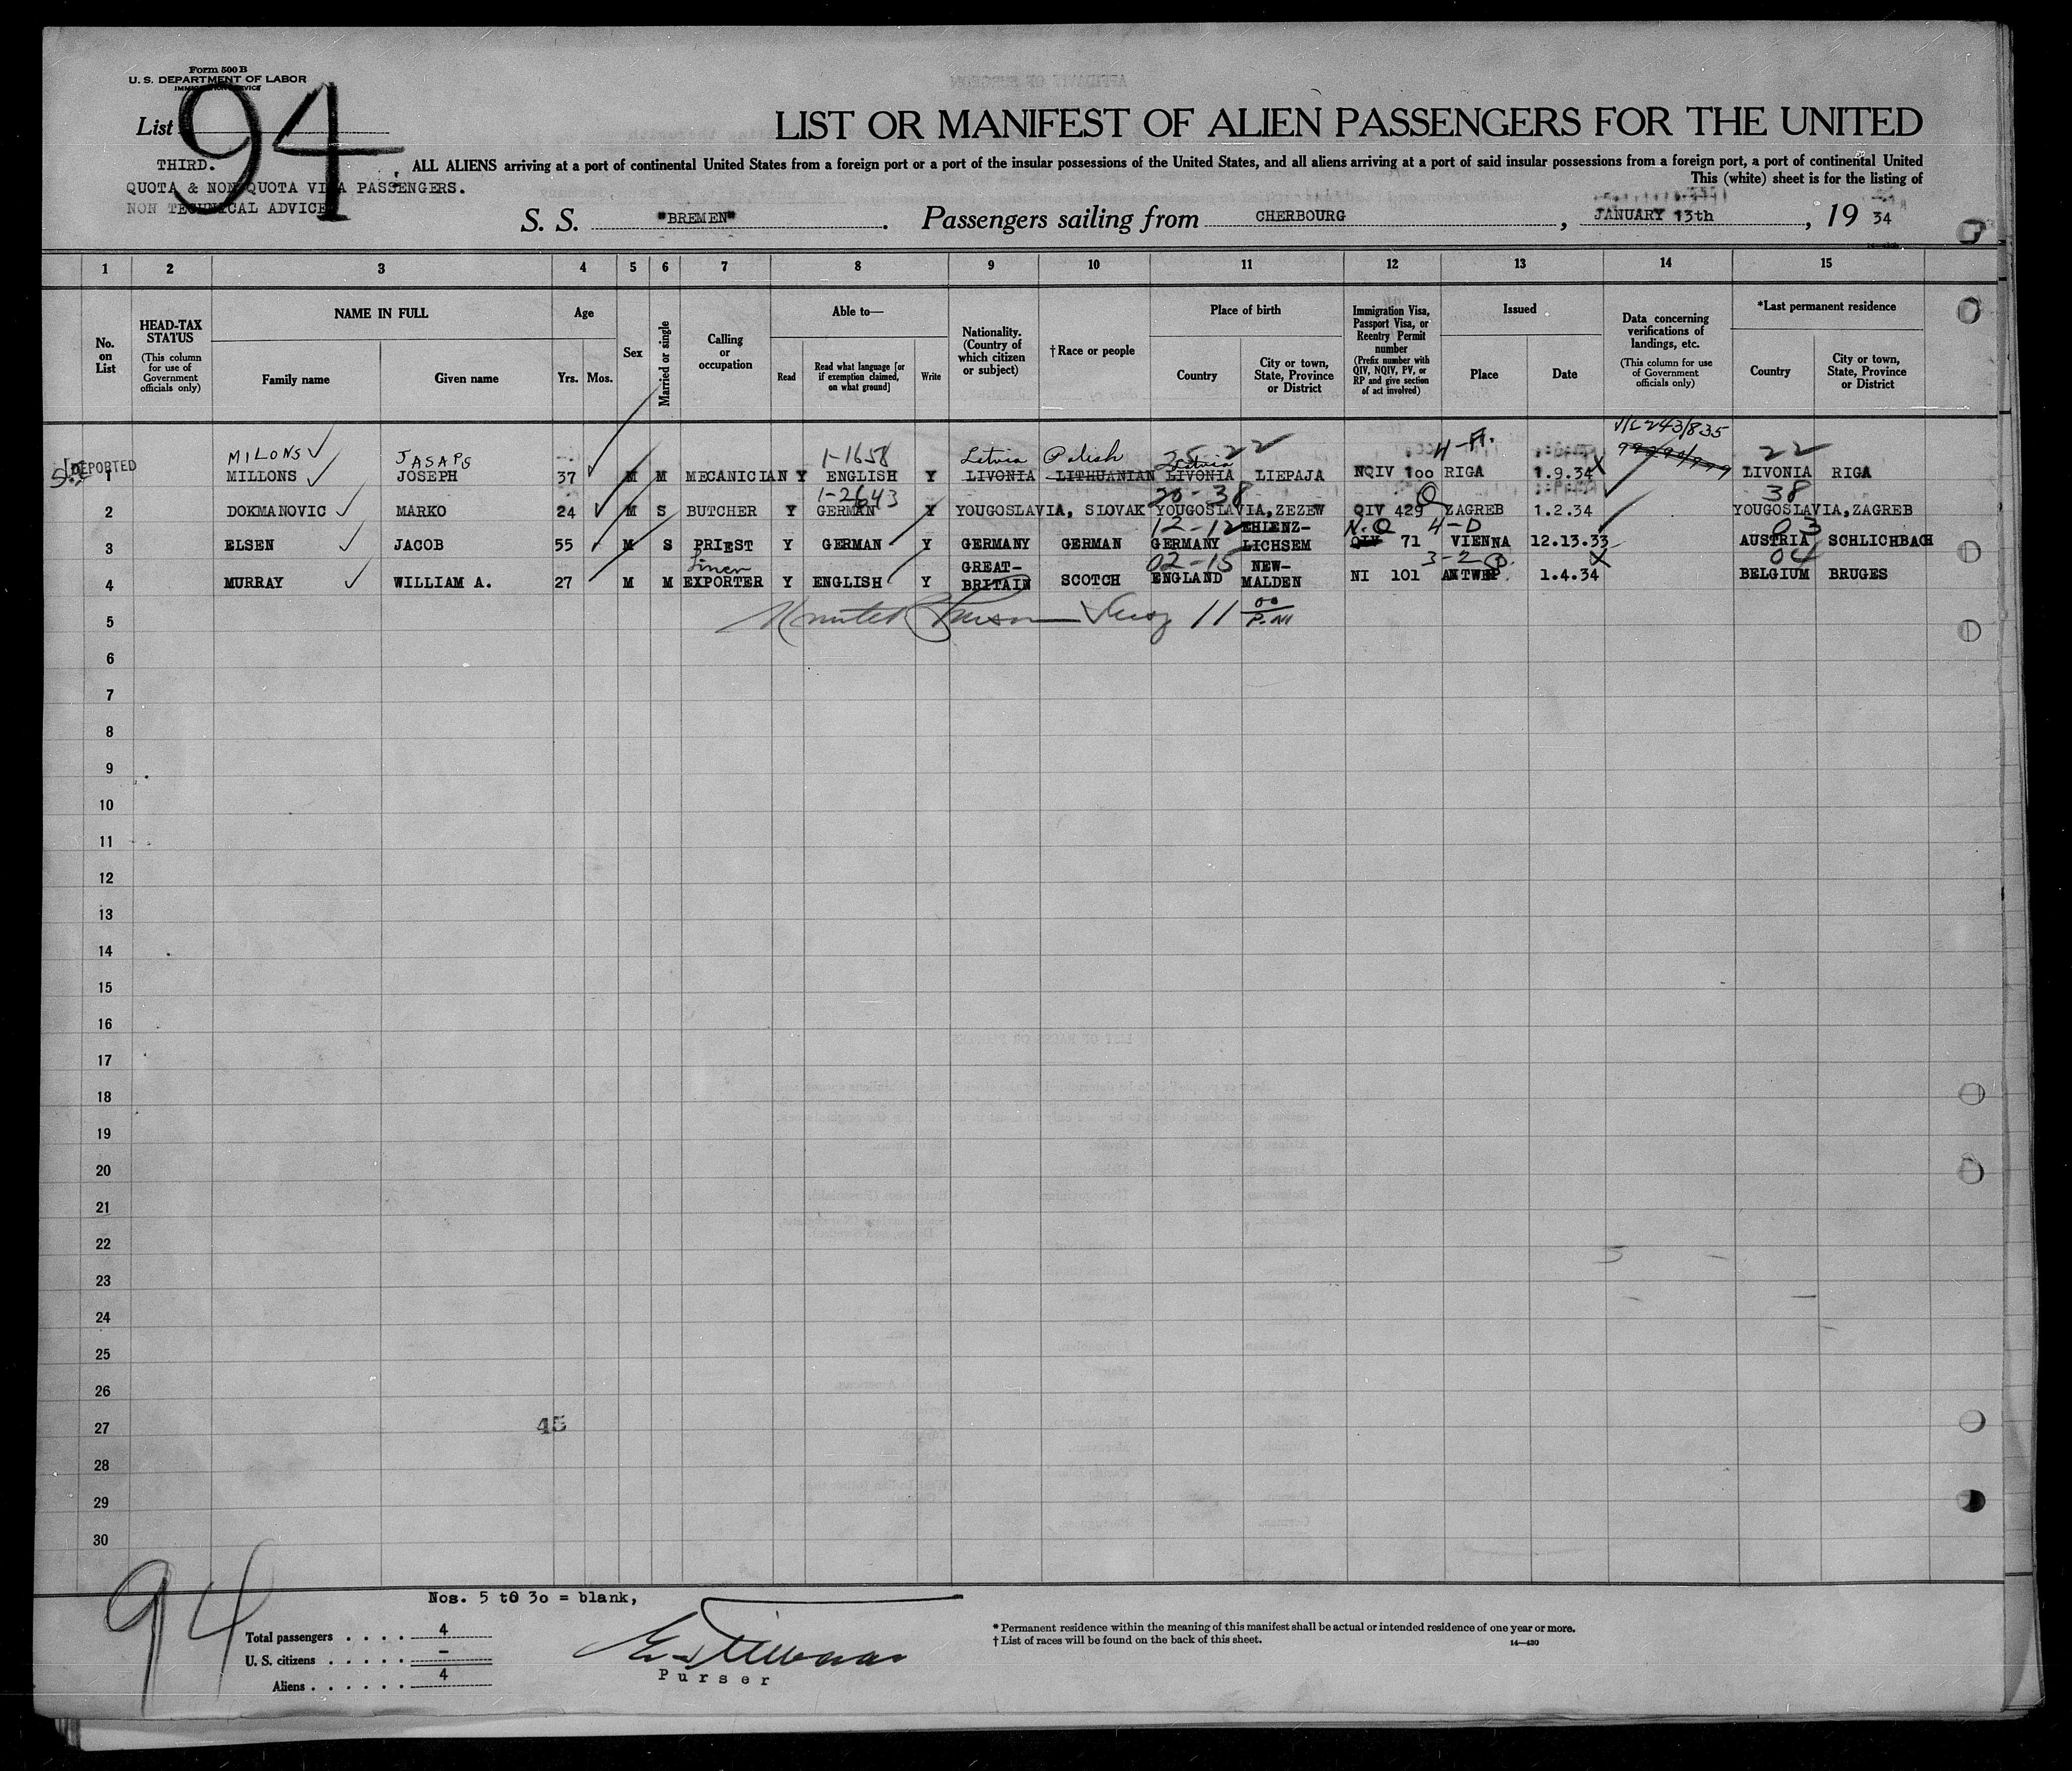 Form 500 B
U. S. DEPARTMENT OF LABOR
IMMIGRATION SERVICE
List 94
LIST OR MANIFEST OF ALIEN PASSENGERS FOR THE UNITED
THIRD.
ALL ALIENS arriving at a port of continental United States from a foreign port or a port of the insular possessions of the United States, and all aliens arriving at a port of said insular possessions from a foreign port, a port of continental United
QUOTA & NON QUOTA VISA PASSENGERS.
This (white) sheet is for the listing of
NON TECHNICAL ADVICE
S. S. "BREMEN". Passengers sailing from CHERBOURG, JANUARY 13th, 19 34
1 2 3 4 5 6 7 8 9 10 11 12 13 14 15
No. on List
HEAD-TAX STATUS
(This column for use of Government officials only)
NAME IN FULL
Family name
Given name
Age
Yrs. Mos.
Sex
Married or single
Calling or occupation
Able to—
Read
Read what language [or if exemption claimed, on what ground]
Write
Nationality. (Country of which citizen or subject)
†Race or people
Place of birth
Country
City or town, State, Province or District
Immigration Visa, Passport Visa, or Reentry Permit number
(Prefix number with QIV, NQIV, PV, or RP and give section of act involved)
Issued
Place
Date
Data concerning verifications of landings, etc.
(This column for use of Government officials only)
*Last permanent residence
Country
City or town, State, Province or District
V/L 243/835
MILONS JASAPS 1-1658 Latvia Polish 35-22 Latvia 4-A. 22
DEPORTED
1 MILLONS JOSEPH 37 M M MECANICIAN Y ENGLISH Y LIVONIA LITHUANIAN LIVONIA LIEPAJA NQIV 100 RIGA 1.9.34 LIVONIA RIGA
1-2643 20-38 Q 38
2 DOKMANOVIC MARKO 24 M S BUTCHER Y GERMAN Y YOUGOSLAVIA, SLOVAK YOUGOSLAVIA, ZEZEW QIV 429 ZAGREB 1.2.34 YOUGOSLAVIA, ZAGREB
12-12 N.Q 4-D 03
3 ELSEN JACOB 55 M S PRIEST Y GERMAN Y GERMANY GERMAN GERMANY EHLENZ-LICHSEM QIV 71 VIENNA 12.13.33 AUSTRIA SCHLICHBACH
Linen 02-15 3-2 04
4 MURRAY WILLIAM A. 27 M M EXPORTER Y ENGLISH Y GREAT-BRITAIN SCOTCH ENGLAND NEW-MALDEN NI 101 ANTWEP 1.4.34 BELGIUM BRUGES
5 11 00 P.M
6
7
8
9
10
11
12
13
14
15
16
17
18
19
20
21
22
23
24
25
26
27 45
28
29
30
94
Nos. 5 to 30 = blank,
Total passengers . . . . 4
U. S. citizens . . . . . –
Aliens . . . . . . 4
Purser
* Permanent residence within the meaning of this manifest shall be actual or intended residence of one year or more.
† List of races will be found on the back of this sheet.
14—430